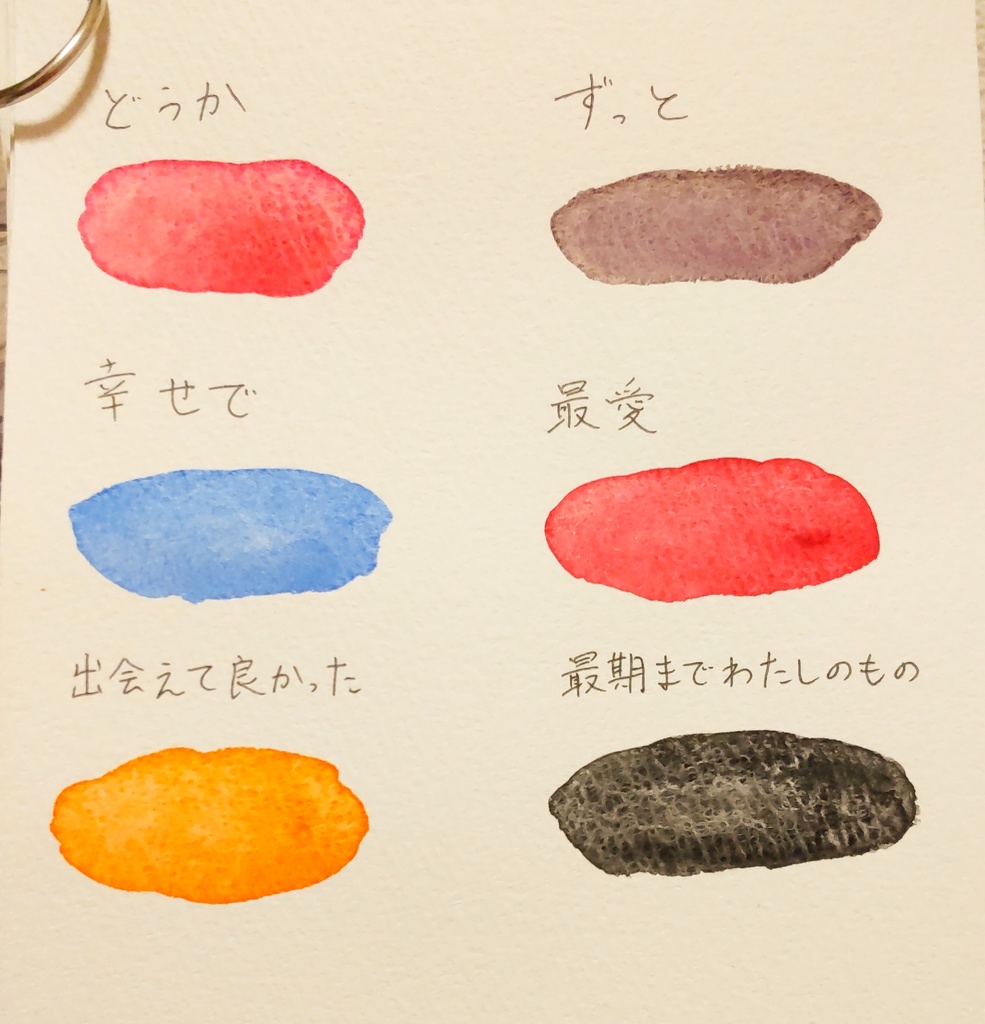 どうか
ずっと
幸せで
最愛
出会えて良かった
最期までわたしのもの